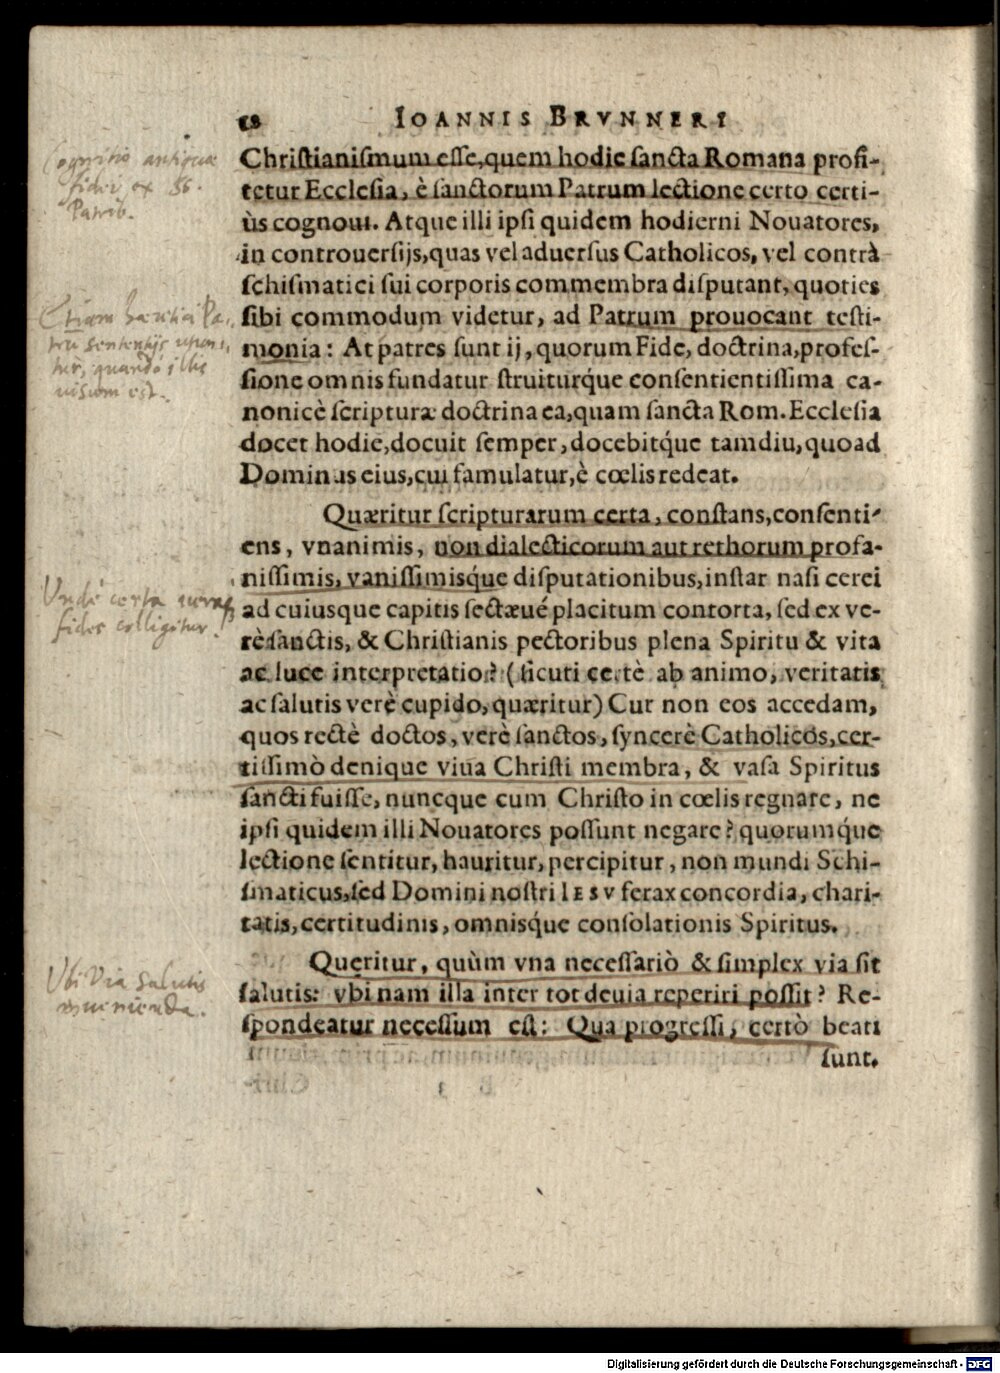 IOANNIS BRVNNERI
Christianiſmum eſſe, quem hodie ſancta Romana profi-
tetur Eccleſia, è ſanctorum Patrum lectione certo certi-
ùs cognoui. Atque illi ipſi quidem hodierni Nouatores,
in controuerſijs, quas vel aduerſus Catholicos, vel contrà
ſchiſmatici ſui corporis commembra diſputant, quoties
ſibi commodum videtur, ad Patrum prouocant teſti-
monia: At patres ſunt ij, quorum Fide, doctrina, profeſ-
ſione omnis fundatur ſtruiturq́ue conſentientiſſima ca-
nonicè ſcripturæ doctrina ea, quam ſancta Rom. Eccleſia
docet hodie, docuit ſemper, docebitq́ue tamdiu, quoad
Dominus eius, cui famulatur, è cœlis redeat.
Quæritur ſcripturarum certa, conſtans, conſenti-
ens, vnanimis, non dialecticorum aut rethorum profa-
niſſimis, vaniſſimisq́ue diſputationibus, inſtar naſi cerei
ad cuiusque capitis ſectæué placitum contorta, ſed ex ve-
rè ſanctis, & Christianis pectoribus plena Spiritu & vita
ac luce interpretatio? (ſicuti certè ab animo, veritatis
ac ſalutis verè cupido, quæritur) Cur non eos accedam,
quos rectè doctos, verè ſanctos, ſyncerè Catholicos, cer-
tiſſimò denique viua Chriſti membra, & vaſa Spiritus
ſancti fuiſſe, nuncque cum Chriſto in cœlis regnare, ne
ipſi quidem illi Nouatores poſſunt negare? quorumq́ue
lectione ſentitur, hauritur, percipitur, non mundi Schi-
ſmaticus, ſed Domini noſtri IESV ferax concordia, chari-
tatis, certitudinis, omnisq́ue conſolationis Spiritus.
Queritur, quùm vna neceſſariò & ſimplex via ſit
ſalutis: vbi nam illa inter tot deuia reperiri poſſit? Re-
ſpondeatur neceſſum eſt: Qua progreſſi, certò beati
ſunt.
Cognitio antiquæ
fidei ex SS.
Patrib.
Etiam hæretici Pa-
trū sententijs utun-
tur, quando illis
visum est.
Unde certa
fides colligitur.
Ubi Via Salutis
invenienda.
Digitalisierung gefördert durch die Deutsche Forschungsgemeinschaft - DFG